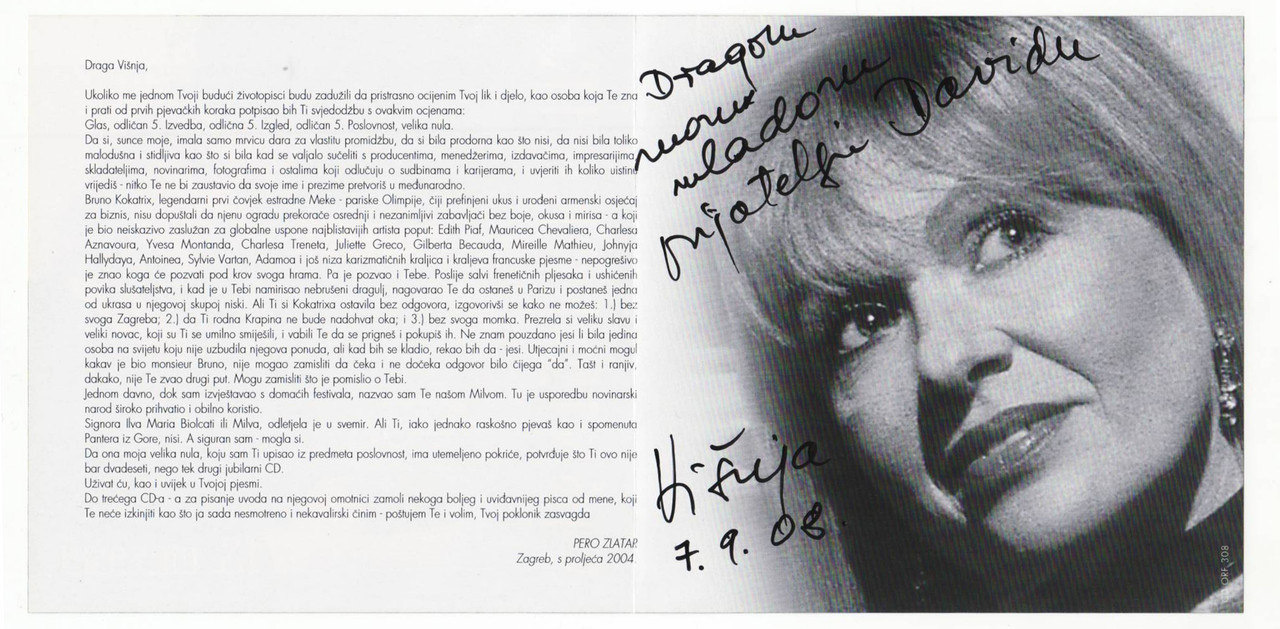 Draga Višnja,
Ukoliko me jednom Tvoji budući životopisci budu zadužili da pristrasno ocijenim Tvoj lik i djelo, kao osoba koja Te zna
i prati od prvih pjevačkih koraka potpisao bih Ti svjedodžbu s ovakvim ocjenama:
Glas, odličan 5. Izvedba, odlična 5. Izgled, odličan 5. Poslovnost, velika nula.
Da si, sunce moje, imala samo mrvicu dara za vlastitu promidžbu, da si bila prodorna kao što nisi, da nisi bila toliko
malodušna i stidljiva kao što si bila kad se valjalo sučeliti s producentima, menedžerima, izdavačima, impresarijima,
skladateljima, novinarima, fotografima i ostalima koji odlučuju o sudbinama i karijerama, i uvjeriti ih koliko uistinu
vrijediš - nitko Te ne bi zaustavio da svoje ime i prezime pretvoriš u međunarodno.
Bruno Kokatrix, legendarni prvi čovjek estradne Meke - pariske Olimpije, čiji prefinjeni ukus i urođeni armenski osjećaj
za biznis, nisu dopuštali da njenu ogradu prekorače osrednji i nezanimljivi zabavljači bez boje, okusa i mirisa - a koji
je bio neiskazivo zaslužan za globalne uspone najblistavijih artista poput: Edith Piaf, Mauricea Chevaliera, Charlesa
Aznavoura, Yvesa Montanda, Charlesa Treneta, Juliette Greco, Gilberta Becauda, Mireille Mathieu, Johnyja
Hallydaya, Antoinea, Sylvie Vartan, Adamoa i još niza karizmatičnih kraljica i kraljeva francuske pjesme - nepogrešivo
je znao koga će pozvati pod krov svoga hrama. Pa je pozvao i Tebe. Poslije salvi frenetičnih pljesaka i ushićenih
povika slušateljstva, i kad je u Tebi namirisao nebrušeni dragulj, nagovarao Te da ostaneš u Parizu i postaneš jedna
od ukrasa u njegovoj skupoj niski. Ali Ti si Kokatrixa ostavila bez odgovora, izgovorivši se kako ne možeš: 1.) bez
svoga Zagreba; 2.) da Ti rodna Krapina ne bude nadohvat oka; i 3.) bez svoga momka. Prezrela si veliku slavu i
veliki novac, koji su Ti se umilno smiješili, i vabili Te da se prigneš i pokupiš ih. Ne znam pouzdano jesi li bila jedina
osoba na svijetu koju nije uzbudila njegova ponuda, ali kad bih se kladio, rekao bih da - jesi. Utjecajni i moćni mogul
kakav je bio monsieur Bruno, nije mogao zamisliti da čeka i ne dočeka odgovor bilo čijega "da". Tašt i ranjiv,
dakako, nije Te zvao drugi put. Mogu zamisliti što je pomislio o Tebi.
Jednom davno, dok sam izvještavao s domaćih festivala, nazvao sam Te našom Milvom. Tu je usporedbu novinarski
narod široko prihvatio i obilno koristio.
Signora Ilva Maria Biolcati ili Milva, odletjela je u svemir. Ali Ti, iako jednako raskošno pjevaš kao i spomenuta
Pantera iz Gore, nisi. A siguran sam - mogla si.
Da ona moja velika nula, koju sam Ti upisao iz predmeta poslovnost, ima utemeljeno pokriće, potvrđuje što Ti ovo nije
bar dvadeseti, nego tek drugi jubilarni CD.
Uživat ću, kao i uvijek u Tvojoj pjesmi.
Do trećega CD-a - a za pisanje uvoda na njegovoj omotnici zamoli nekoga boljeg i uvidavnijeg pisca od mene, koji
Te neće izkinjiti kao što ja sada nesmotreno i nekavalirski činim - poštujem Te i volim, Tvoj poklonik zasvagda
PERO ZLATAR
Zagreb, s proljeća 2004.
Dragom
mom
mladom
prijatelju Davidu
Višnja
7. 9. 08.
ORF 308